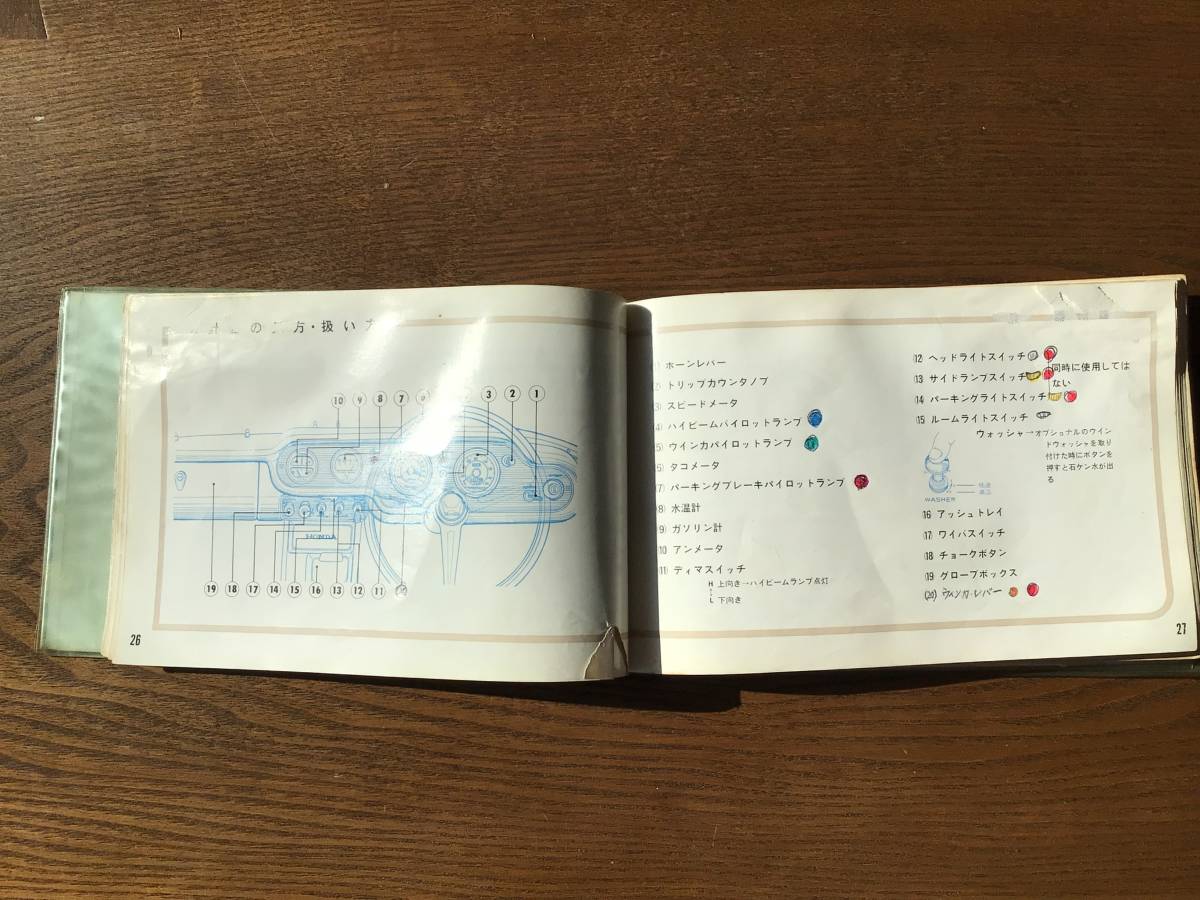 の
方・扱い方
10 9 8 7 3 2 1
HONDA
19 18 17 14 15 16 13 12 11 20
26
(1) ホーンレバー
(2) トリップカウンタノブ
(3) スピードメータ
(4) ハイビームパイロットランプ
(5) ウインカパイロットランプ
(6) タコメータ
(7) パーキングブレーキパイロットランプ
(8) 水温計
(9) ガソリン計
(10) アンメータ
(11) ディマスイッチ
H 上向き→ハイビームランプ点灯
L 下向き
(12) ヘッドライトスイッチ
(13) サイドランプスイッチ
(14) パーキングライトスイッチ
同時に使用しては
ない
(15) ルームライトスイッチ
ウォッシャ→オプショナルのウイン
ドウォッシャを取り
付けた時にボタンを
押すと石ケン水が出
る
WASHER
(16) アッシュトレイ
(17) ワイパスイッチ
(18) チョークボタン
(19) グローブボックス
(20) ウインカ・レバー
27